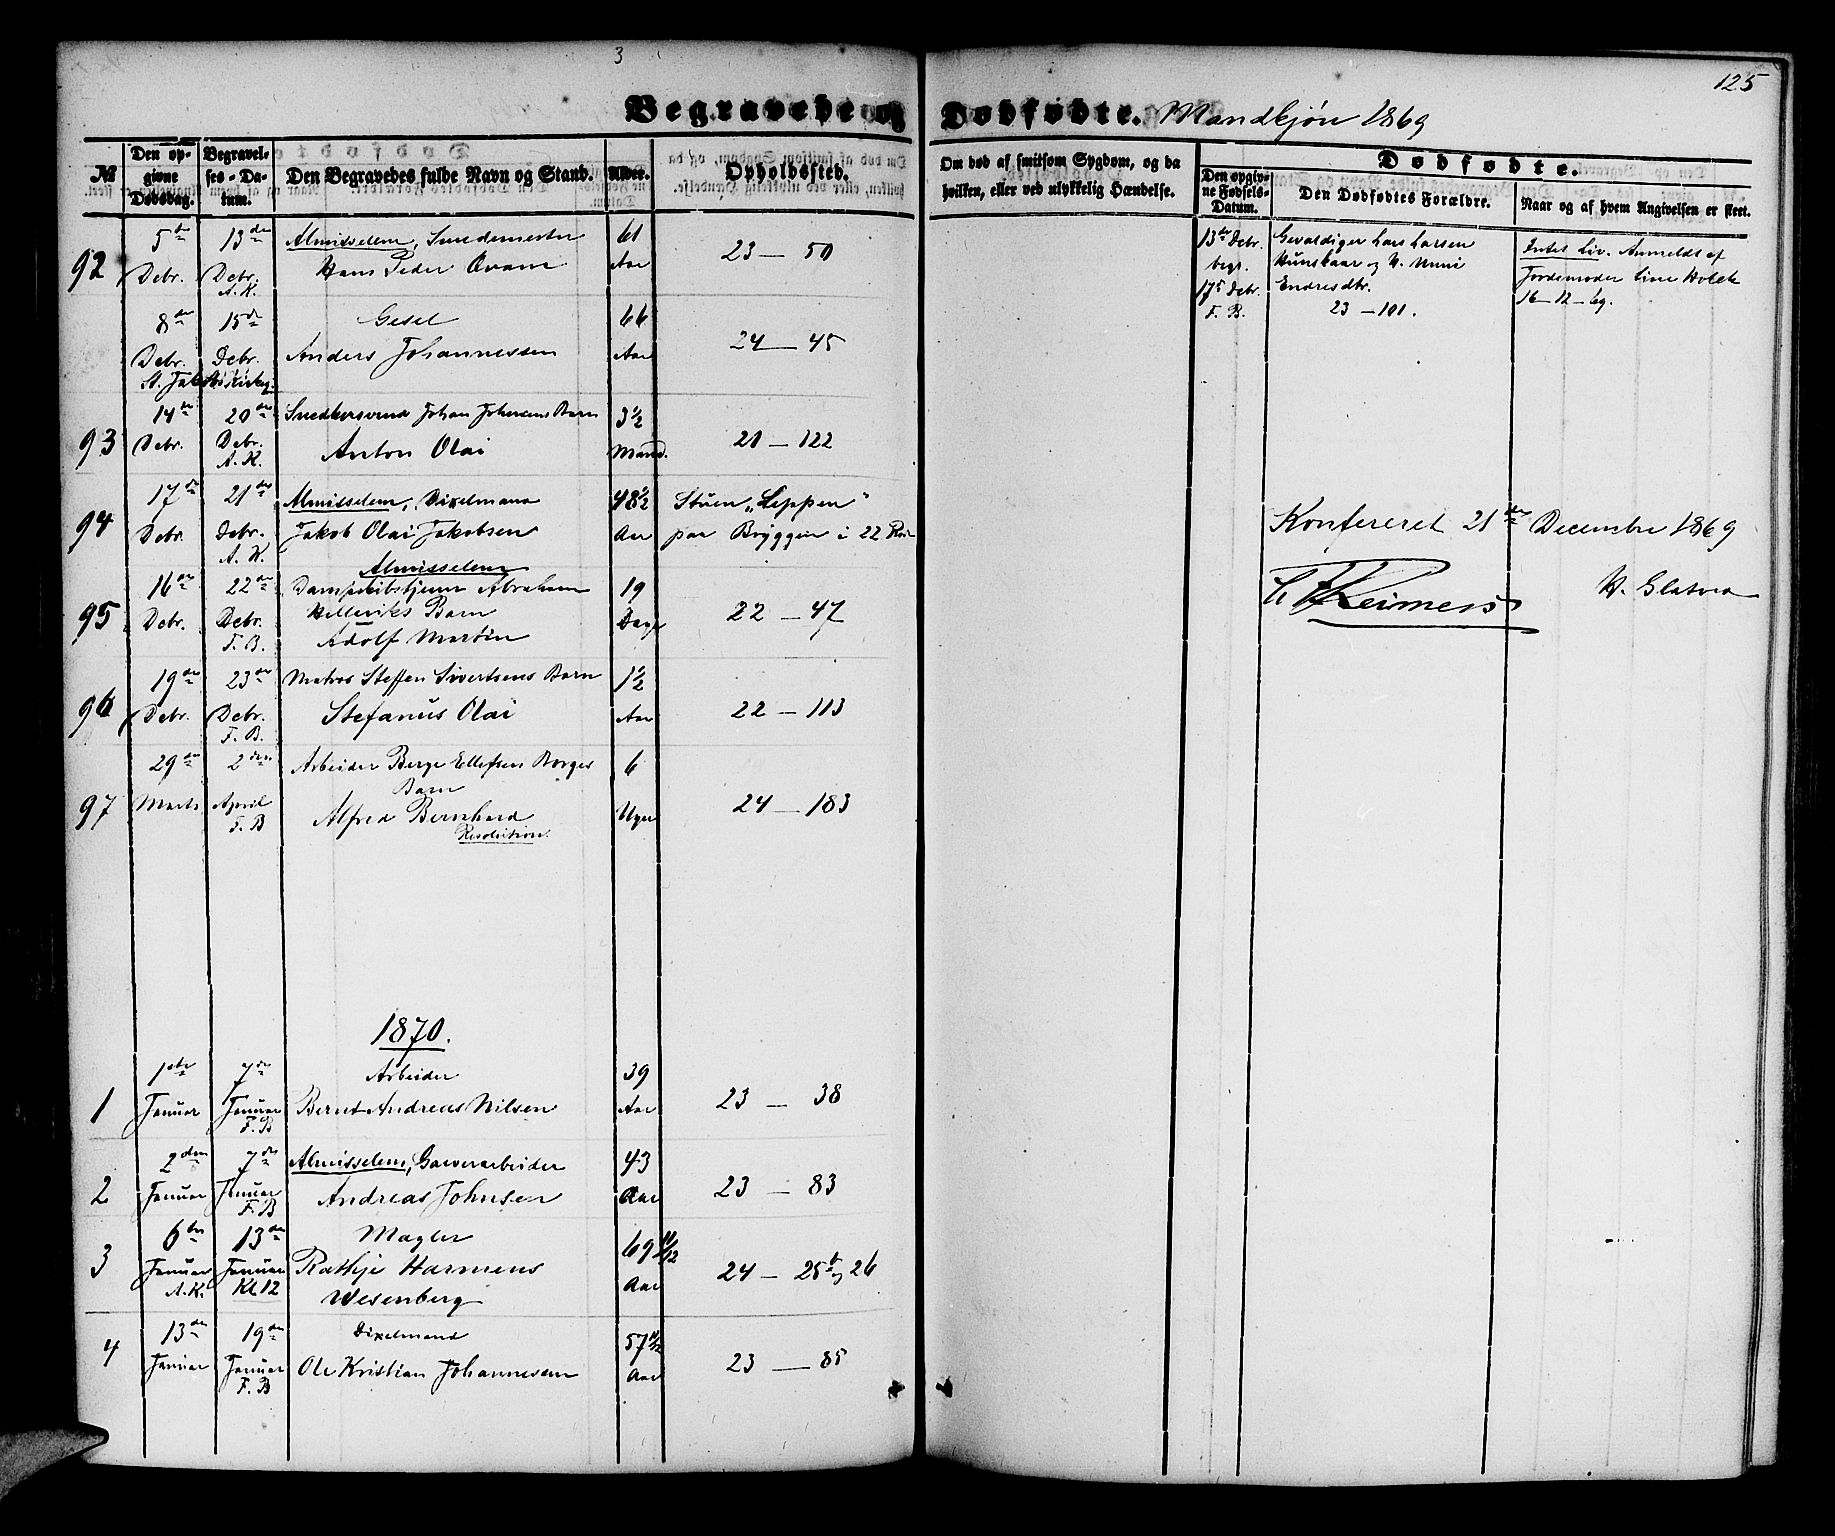 3
125
Begravede og Dødfødte. Mandkjøn 1869
№
Den opgivne Dødsdag.
Begravelses-Datum.
Den Begravedes fulde Navn og Stand.
Alder.
Opholdssted.
Om død af smitsom Sygdom, og da hvilken, eller ved ulykkelig Hændelse.
Dødfødte.
Den opgivne Fødsels-Datum.
Den Dødfødtes Forældre.
Naar og af hvem Angivelsen er skeet.
92 5te Debr. 13de Debr. A.K. Almisselem, Smedemester Hans Peder Qvam 61 Aar 23 — 50
13de Debr. begr. 17de Debr. F. B.
Gevaldiger Lars Larsen Hunskaar og H. Unni Endresdtr. 23 — 101.
Intet Liv. Anmeldt af Jordemoder Line Holck 16-12-69.
8de Debr. 15de Debr. Gesel Anders Johannessen 66 Aar 24 — 45
St. Jakobs Kirkeg.
93 14de Debr. 20de Debr. A.K. Snedkersvend Johan Johnsens Barn Anton Olai 3½ Maaned. 21 — 122
94 17de Debr. 21de Debr. A. K. Almisselem, Dixelmand Jakob Olai Jakobsen 48½ Aar Stuen „Leppen" paa Bryggen i 22 Rode
Konfereret 21de Decembre 1869
Reimers
95 16de Debr. 22de Debr. F. B. Almisselem Dampskibstjener Abraham Helleviks Barn Adolf Martin 19 Dage 22 — 47
96 19de Debr. 23de Debr. F. B. Matros Steffen Sivertsens Barn Stefanus Olai 1½ Aar 22 — 113
97 29de Marts 2den April F. B Arbeider Berge Ellefsen Borges Barn Alfred Bernhard 6 Uger 24 — 183
Resolution.
1870.
1 1ste Januar 7de Januar F. B Arbeider Bernt Andreas Nilsen 39 Aar 23 — 38
2 2den Januar 7de Januar F. B Almisselem, Garverarbeider Andreas Johnsen 43 Aar 23 — 83
3 6te Januar A.K. 13de Januar Kl 12 Magler Rathje Harmens Wesenberg 69 11/12 Aar 24 — 25b og 26
4 13de Januar 19de Januar F. B Dixelmand Ole Kristian Johannesen 57 11/12 Aar 23 — 85